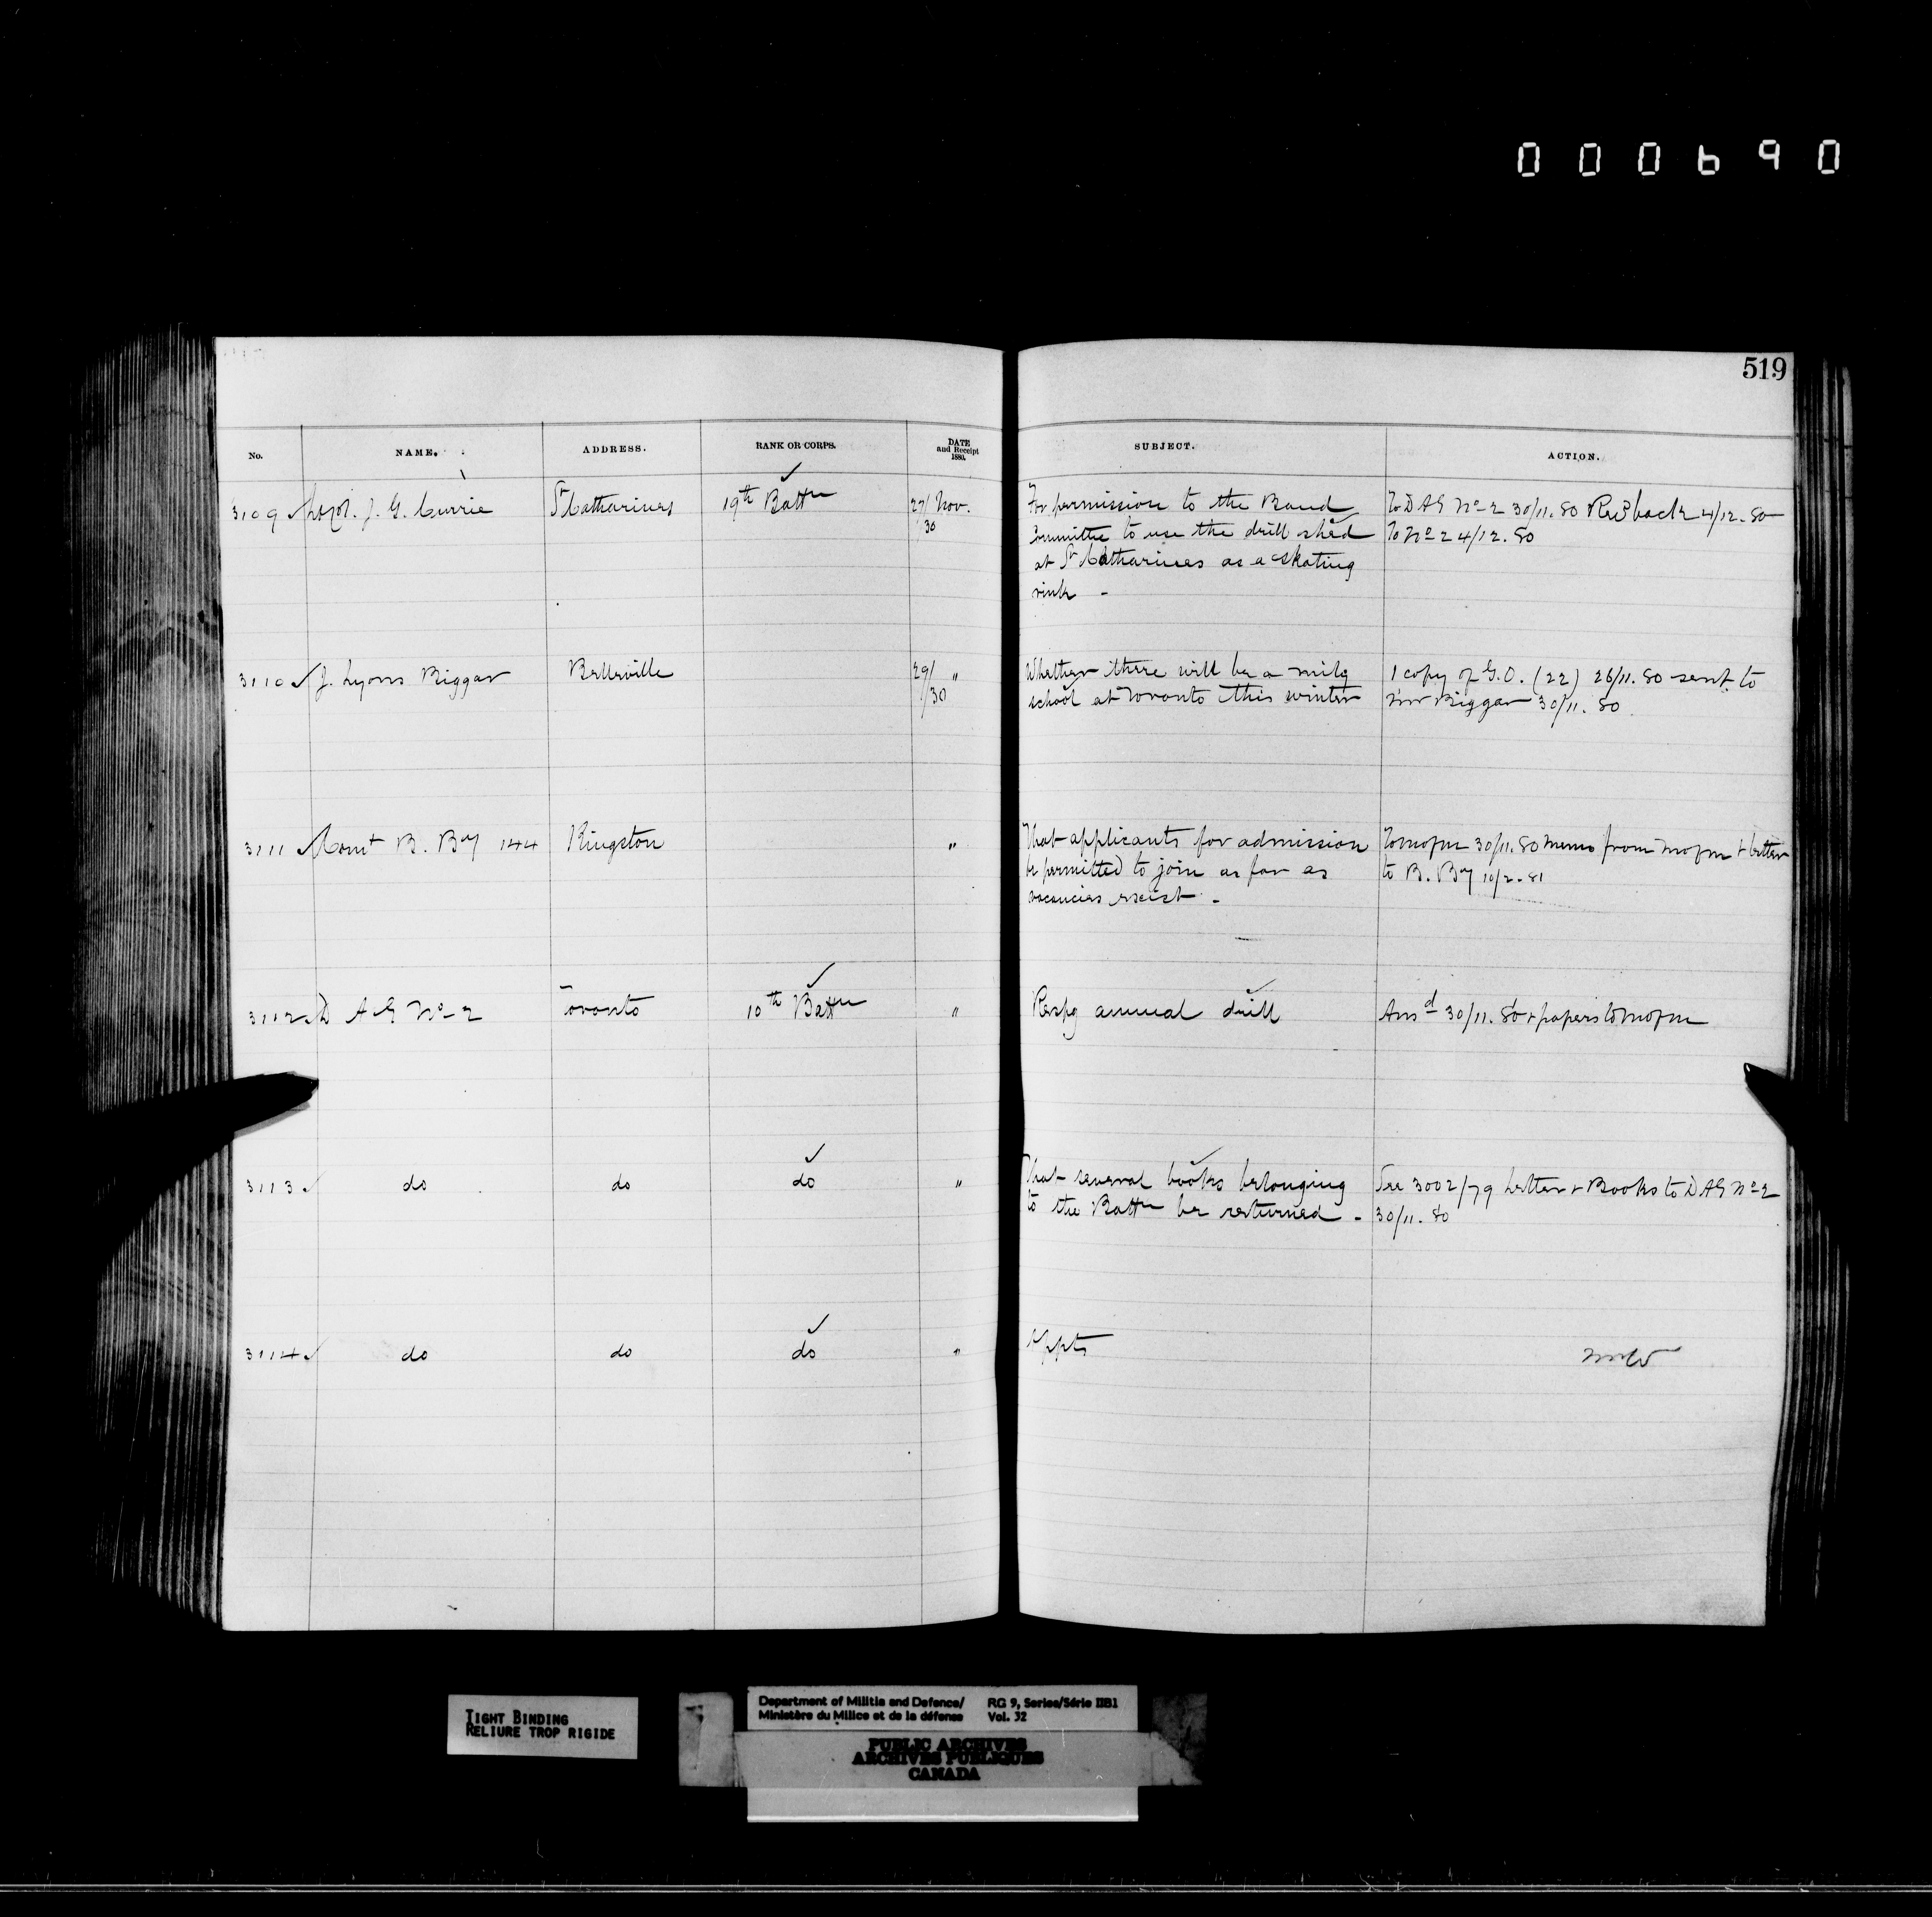 000690
519
No. NAME. ADDRESS. RANK OR CORPS. DATE and Receipt 1880. SUBJECT. ACTION.
3109 J. G. Currie St Catharines 19th Battn 27/30 Nov. For permission to the Band To DAG No 2 30/11.80 Recd back 4/12.80
Committee to use the drill shed To No 2 4/12.80
at St Catharines as a skating
rink -
3110 J. Lyons Biggar Belleville 29/30 " Whether there will be a mily 1 copy of G.O. (22) 26/11.80 sent to
school at Toronto this winter Mr Biggar 30/11.80
3111 Comt B. By 144 Kingston " That applicants for admission To mofm 30/11.80 memo from mofm + letter
be permitted to join as far as to B. By 10/2.81
vacancies exist -
3112 D A G No 2 Toronto 10th Battn " Respg annual drill Ansd 30/11.80 + papers to mofm
3113 do do do " That several books belonging See 3002/79 Letter + Books to DAG No 2
to the Battn be returned - 30/11.80
3114 do do do " Appts
TIGHT BINDING
RELIURE TROP RIGIDE
Department of Militia and Defence/ RG 9, Series/Série IIB1
Ministère du Milice et de la défense Vol. 32
PUBLIC ARCHIVES
ARCHIVES PUBLIQUES
CANADA